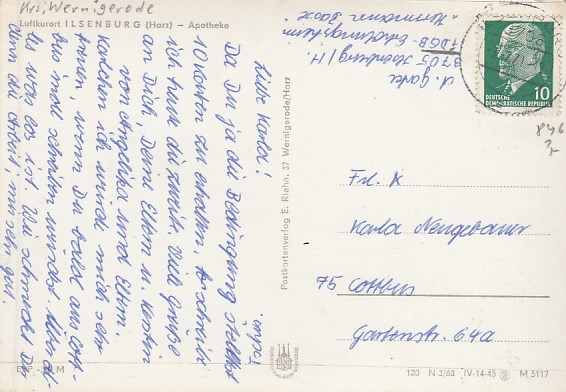 Krs. Wernigerode
Luftkurort ILSENBURG (Harz) – Apotheke
Liebe Karla!
Da Du ja die Bedingung stelltest
10 Karten zu erhalten, so schreibe
ich heute die zweite. Viele Grüße
an Dich, Deine Eltern u. Kerstin
von Angelika und Eltern.
Karlchen ich würde mich sehr
freuen, wenn Du bald aus Cott-
bus mal schreiben würdest. Aber
les was es ist. Wie schmeckt Dir
denn die Arbeit, mir sehr gut.
EVP
M
Postkartenverlag E. Riehn, 37 Wernigerode/Harz
A.
3705 Ilsenburg/H
FDGB-Erholungsheim
"Hermann
10
DEUTSCHE
DEMOKRATISCHE REPUBLIK
846
Frl. K
Karla Neugebauer
75 Cottbus
Gartenstr. 64a
120 N 3/63 IV-14-45 M 5117